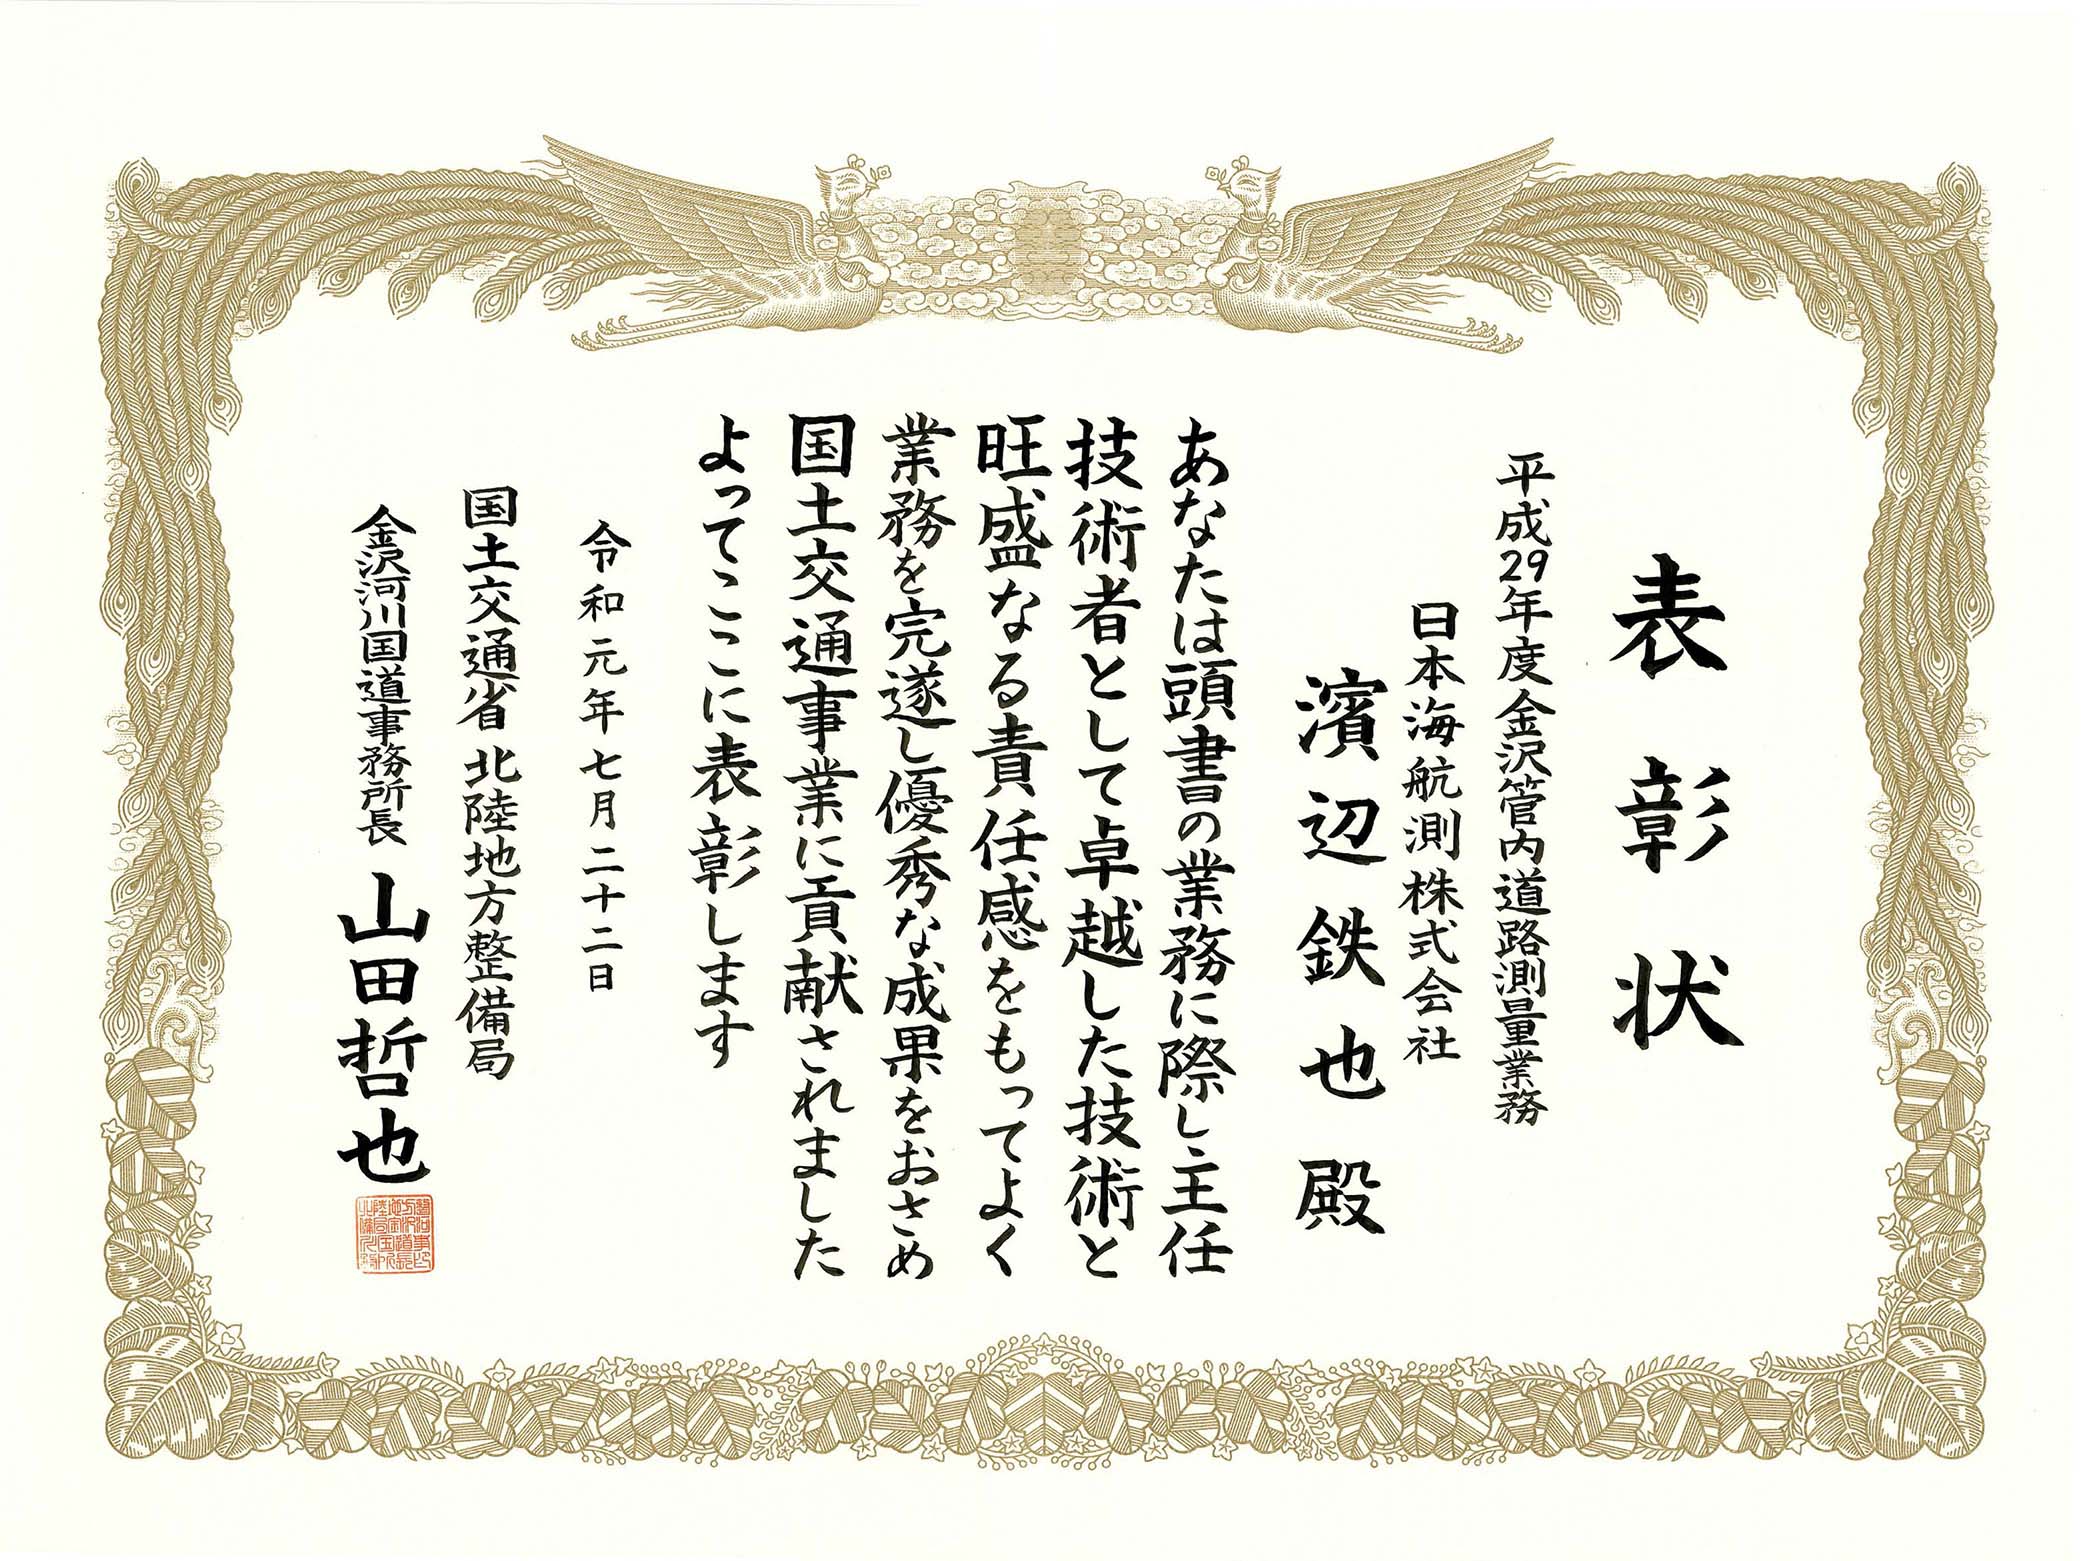 表彰状
平成29年度金沢管内道路測量業務
日本海航測株式会社
濱辺鉄也殿
あなたは頭書の業務に際し主任
技術者として卓越した技術と
旺盛なる責任感をもってよく
業務を完遂し優秀な成果をおさめ
国土交通事業に貢献されました
よってここに表彰します
令和元年七月二十二日
国土交通省北陸地方整備局
金沢河川国道事務所長 山田哲也